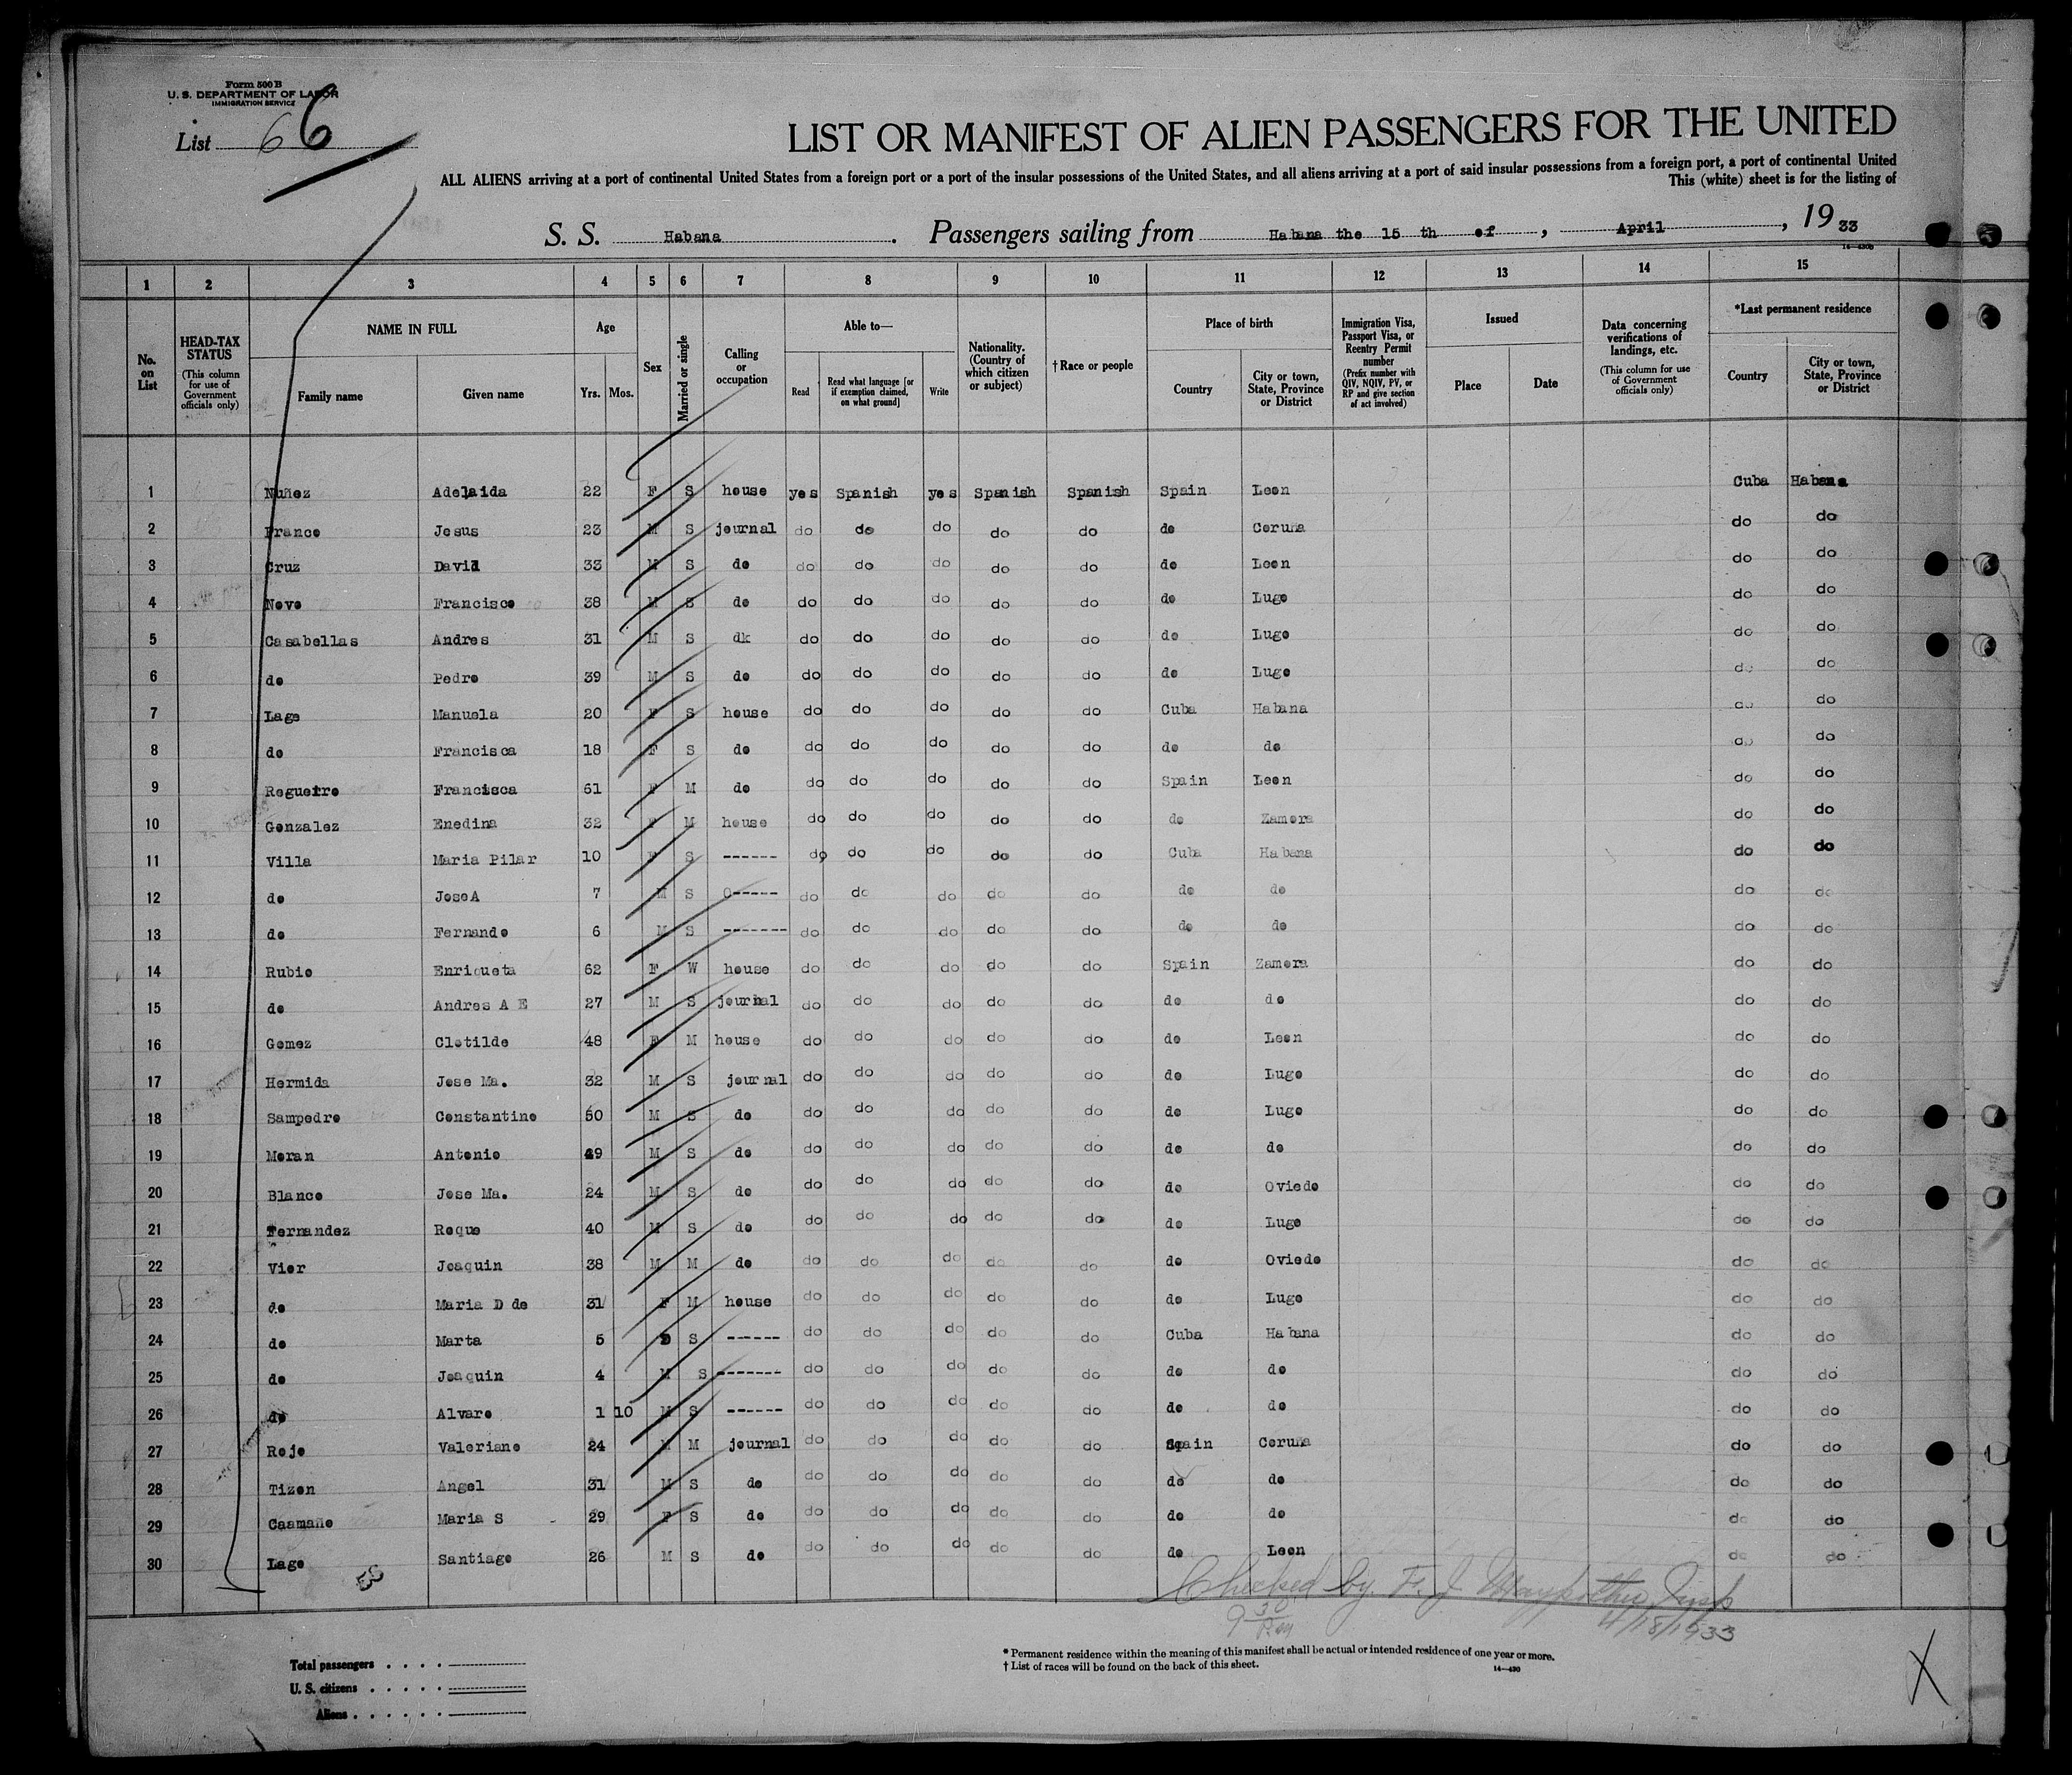 Form 500 B
U. S. DEPARTMENT OF LABOR
IMMIGRATION SERVICE
List 6 6
LIST OR MANIFEST OF ALIEN PASSENGERS FOR THE UNITED
ALL ALIENS arriving at a port of continental United States from a foreign port or a port of the insular possessions of the United States, and all aliens arriving at a port of said insular possessions from a foreign port, a port of continental United
This (white) sheet is for the listing of
S. S. Habana. Passengers sailing from Habana the 15 th of, April, 19 33
1 2 3 4 5 6 7 8 9 10 11 12 13 14 15
No. on List
HEAD-TAX STATUS (This column for use of Government officials only)
NAME IN FULL Family name Given name
Age Yrs. Mos.
Sex
Married or single
Calling or occupation
Able to— Read Read what language [or if exemption claimed, on what ground] Write
Nationality. (Country of which citizen or subject)
† Race or people
Place of birth Country City or town, State, Province or District
Immigration Visa, Passport Visa, or Reentry Permit number (Prefix number with QIV, NQIV, PV, or RP and give section of act involved)
Issued Place Date
Data concerning verifications of landings, etc. (This column for use of Government officials only)
*Last permanent residence Country City or town, State, Province or District
1 Nuñez Adelaida 22 F S house yes Spanish yes Spanish Spanish Spain Leon Cuba Habana
2 Franco Jesus 23 M S journal do do do do do do Coruña do do
3 Cruz David 33 M S do do do do do do do Leon do do
4 Novo Francisco 38 M S do do do do do do do Lugo do do
5 Casabellas Andres 31 M S dk do do do do do do Lugo do do
6 do Pedro 39 M S do do do do do do do Lugo do do
7 Lage Manuela 20 F S house do do do do do Cuba Habana do do
8 do Francisca 18 F S do do do do do do do do do do
9 Regueiro Francisca 61 F M do do do do do do Spain Leon do do
10 Gonzalez Enedina 32 F M house do do do do do do Zamora do do
11 Villa Maria Pilar 10 F S ------ do do do do do Cuba Habana do do
12 do JoseA 7 M S 0----- do do do do do do do do do
13 do Fernando 6 M S ------- do do do do do do do do do
14 Rubio Enriqueta 62 F W house do do do do do Spain Zamora do do
15 do Andres A E 27 M S journal do do do do do do do do do
16 Gomez Clotilde 48 F M house do do do do do do Leon do do
17 Hermida Jose Ma. 32 M S journal do do do do do do Lugo do do
18 Sampedro Constantino 50 M S do do do do do do do Lugo do do
19 Moran Antonio 49 M S do do do do do do do do do do
20 Blanco Jose Ma. 24 M S do do do do do do do Oviedo do do
21 Fernandez Roque 40 M S do do do do do do do Lugo do do
22 Vior Joaquin 38 M M do do do do do do do Oviedo do do
23 do Maria D de 31 F M house do do do do do do Lugo do do
24 do Marta 5 S ------ do do do do do Cuba Habana do do
25 do Joaquin 4 M S ------- do do do do do do do do do
26 do Alvaro 1 10 M S ------ do do do do do do do do do
27 Rojo Valeriano 24 M M journal do do do do do Spain Coruña do do
28 Tizon Angel 31 M S do do do do do do do do do do
29 Caamaño Maria S 29 F S do do do do do do do do do do
30 Lago Santiago 26 M S do do do do do do do Leon do do
30
Checked by F. J. Insp
9 30 P.M 4/18/1933
* Permanent residence within the meaning of this manifest shall be actual or intended residence of one year or more.
† List of races will be found on the back of this sheet. 14—430
Total passengers
U. S. citizens
Aliens
X